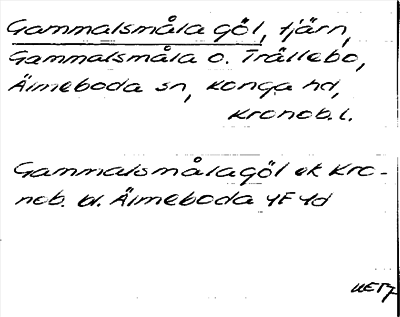 Gammalsmåla göl, tjärn,
Gammalsmåla o. Trällebo,
Älmeboda sn, Konga hd,
Kronob. l.
Gammalsmåla göl ek Kro-
nob. bl. Älmeboda 4F 4d